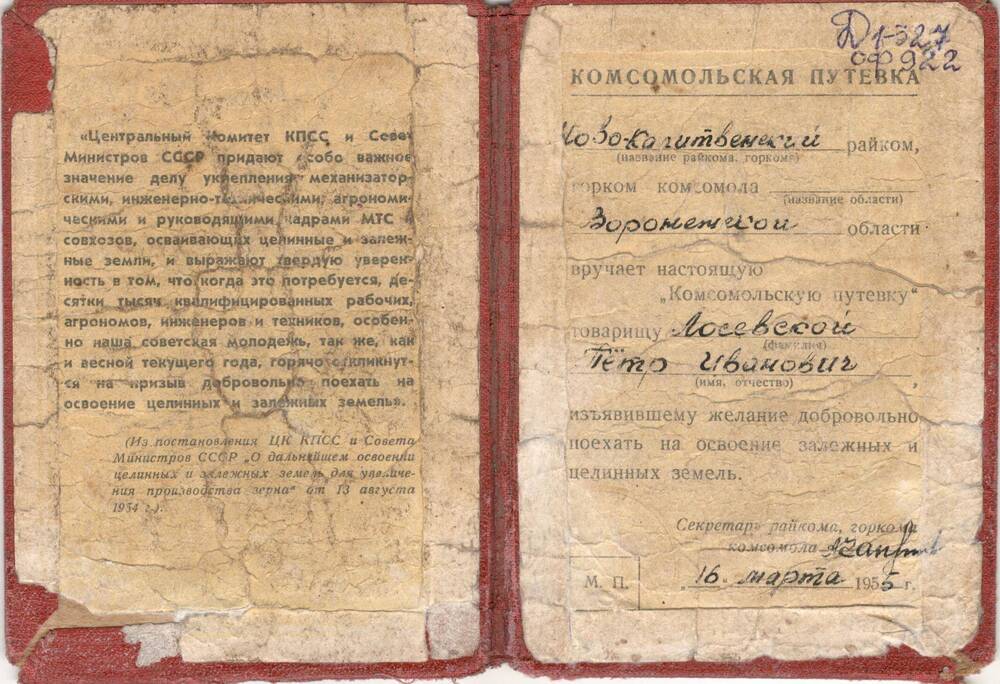 «Центральный Комитет КПСС и Совет
Министров СССР придают особо важное
значение делу укрепления механизатор-
скими, инженерно-техническими, агрономи-
ческими и руководящими кадрами МТС и
совхозов, осваивающих целинные и залеж-
ные земли, и выражают твердую уверен-
ность в том, что когда это потребуется, де-
сятки тысяч квалифицированных рабочих,
агрономов, инженеров и техников, особен-
но наша советская молодежь, так же, как
и весной текущего года, горячо откликнут-
ся на призыв добровольно поехать на
освоение целинных и залежных земель».
(Из постановления ЦК КПСС и Совета
Министров СССР „О дальнейшем освоении
целинных и залежных земель для увеличе-
ния производства зерна" от 13 августа
1954 г.).
Д1-527
ОФ922
КОМСОМОЛЬСКАЯ ПУТЕВКА
Новокалитвенский райком,
(название райкома, горкома)
горком комсомола
(название области)
Воронежской области
вручает настоящую
„Комсомольскую путевку"
товарищу Лосевской
(фамилия)
Пётр Иванович,
(имя, отчество)
изъявившему желание добровольно
поехать на освоение залежных и
целинных земель.
Секретарь райкома, горкома
комсомола
М. П. „16. марта 1955 г.